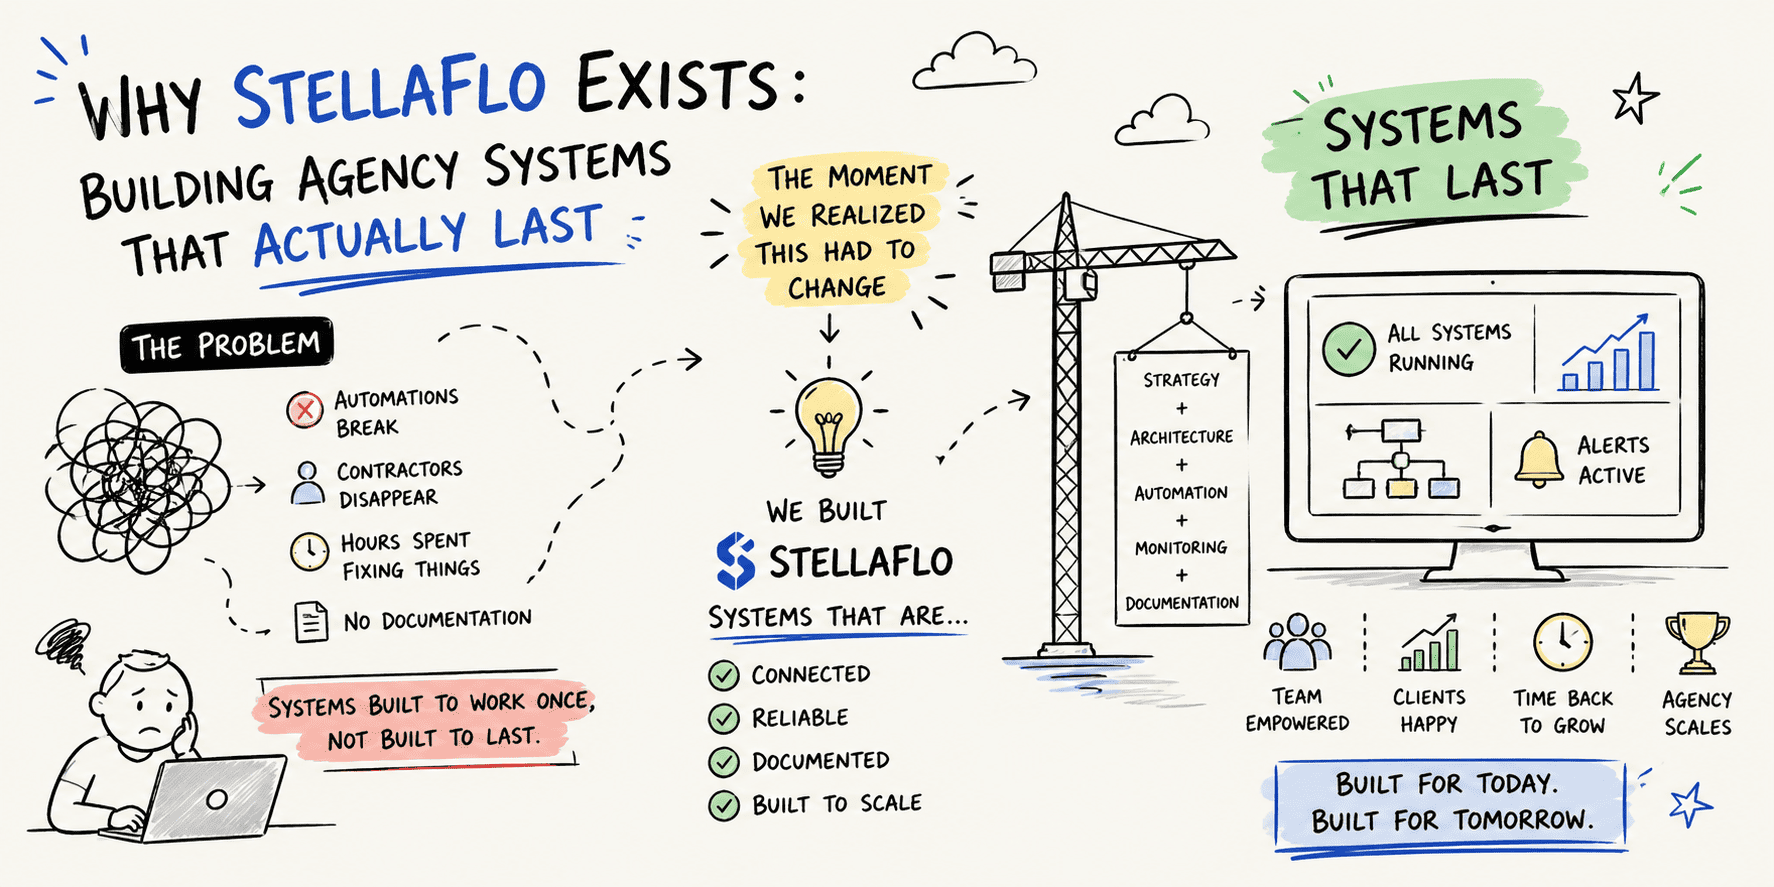 WHY STELLAFLO EXISTS:
BUILDING AGENCY SYSTEMS
THAT ACTUALLY LAST
THE PROBLEM
AUTOMATIONS
BREAK
CONTRACTORS
DISAPPEAR
HOURS SPENT
FIXING THINGS
NO DOCUMENTATION
SYSTEMS BUILT TO WORK ONCE,
NOT BUILT TO LAST.
THE MOMENT
WE REALIZED
THIS HAD TO
CHANGE
WE BUILT
STELLAFLO
SYSTEMS THAT ARE...
CONNECTED
RELIABLE
DOCUMENTED
BUILT TO SCALE
STRATEGY
+
ARCHITECTURE
+
AUTOMATION
+
MONITORING
+
DOCUMENTATION
SYSTEMS
THAT LAST
ALL SYSTEMS
RUNNING
ALERTS
ACTIVE
TEAM
EMPOWERED
CLIENTS
HAPPY
TIME BACK
TO GROW
AGENCY
SCALES
BUILT FOR TODAY.
BUILT FOR TOMORROW.